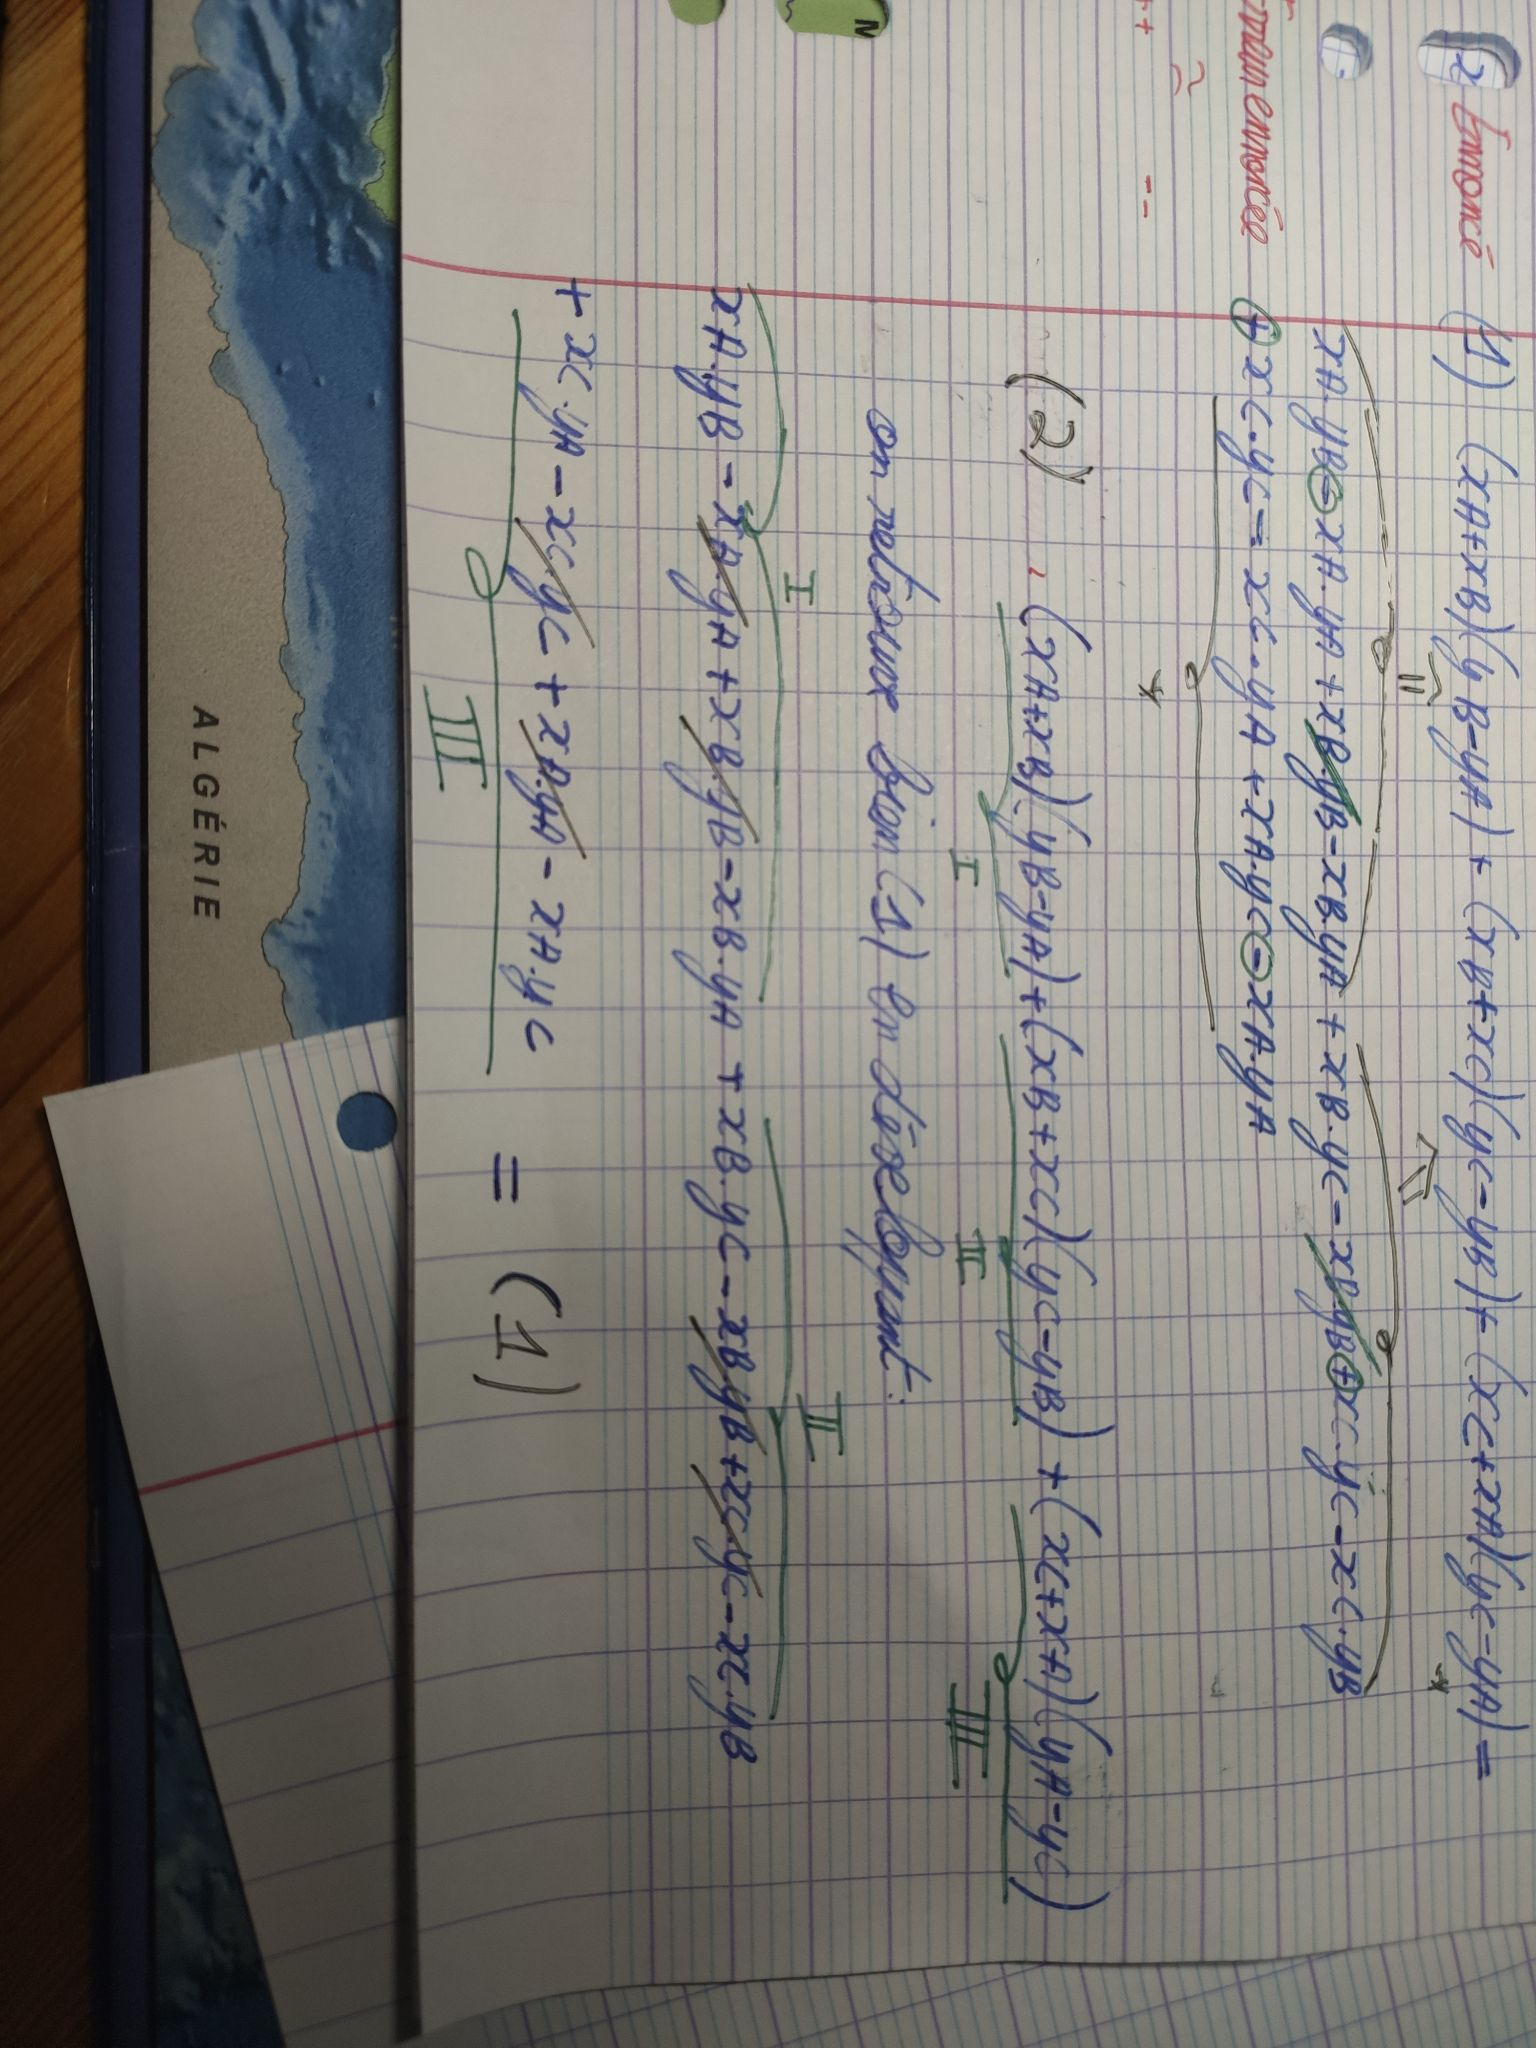 x Enoncé (1) (xA+xB)(yB-yA) + (xB+xC)(yC-yB) + (xC+xA)(yC-yA) =
xA.yB - xA.yA + xB.yB - xB.yA + xB.yC - xB.yB + xC.yC - xC.yB
+ xC.yC = xC.yA + xA.yC - xA.yA
++ --
(2) (xA+xB)(yB-yA) + (xB+xC)(yC-yB) + (xC+xA)(yA-yC)
I II III
on retrouve bien (1) en développant:
N
I II
xA.yB - xA.yA + xB.yB - xB.yA + xB.yC - xB.yB + xC.yC - xC.yB
+ xC.yA - xC.yC + xA.yA - xA.yC = (1)
III
ALGÉRIE